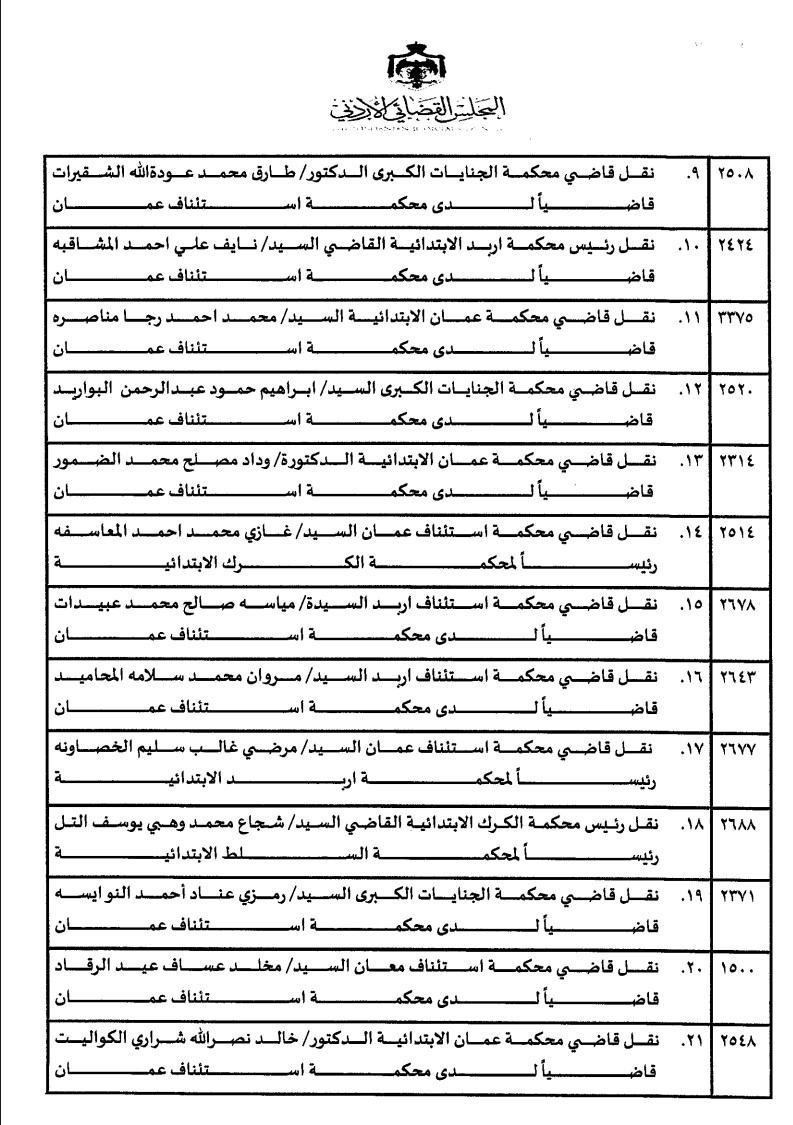 المجلس القضائي الأردني
٢٥٠٨ ٩. نقل قاضي محكمة الجنايات الكبرى الدكتور/ طارق محمد عودةالله الشقيرات
قاضياً لدى محكمة استئناف عمان
٢٤٢٤ ١٠. نقل رئيس محكمة اربد الابتدائية القاضي السيد/ نايف علي احمد المشاقبه
قاضياً لدى محكمة استئناف عمان
٣٣٧٥ ١١. نقل قاضي محكمة عمان الابتدائية السيد/ محمد احمد رجا مناصره
قاضياً لدى محكمة استئناف عمان
٢٥٢٠ ١٢. نقل قاضي محكمة الجنايات الكبرى السيد/ ابراهيم حمود عبدالرحمن البواريد
قاضياً لدى محكمة استئناف عمان
٢٣١٤ ١٣. نقل قاضي محكمة عمان الابتدائية الدكتورة/ وداد مصلح محمد الضمور
قاضياً لدى محكمة استئناف عمان
٢٥١٤ ١٤. نقل قاضي محكمة استئناف عمان السيد/ غازي محمد احمد المعاسفه
رئيساً لمحكمة الكرك الابتدائية
٢٦٧٨ ١٥. نقل قاضي محكمة استئناف اربد السيدة/ مياسه صالح محمد عبيدات
قاضياً لدى محكمة استئناف عمان
٢٦٤٣ ١٦. نقل قاضي محكمة استئناف اربد السيد/ مروان محمد سلامه المحاميد
قاضياً لدى محكمة استئناف عمان
٢٦٧٧ ١٧. نقل قاضي محكمة استئناف عمان السيد/ مرضي غالب سليم الخصاونه
رئيساً لمحكمة اربد الابتدائية
٢٦٨٨ ١٨. نقل رئيس محكمة الكرك الابتدائية القاضي السيد/ شجاع محمد وهبي يوسف التل
رئيساً لمحكمة السلط الابتدائية
٢٣٧١ ١٩. نقل قاضي محكمة الجنايات الكبرى السيد/ رمزي عناد أحمد النوايسه
قاضياً لدى محكمة استئناف عمان
١٥٠٠ ٢٠. نقل قاضي محكمة استئناف معان السيد/ مخلد عساف عيد الرقاد
قاضياً لدى محكمة استئناف عمان
٢٥٤٨ ٢١. نقل قاضي محكمة عمان الابتدائية الدكتور/ خالد نصرالله شراري الكواليت
قاضياً لدى محكمة استئناف عمان